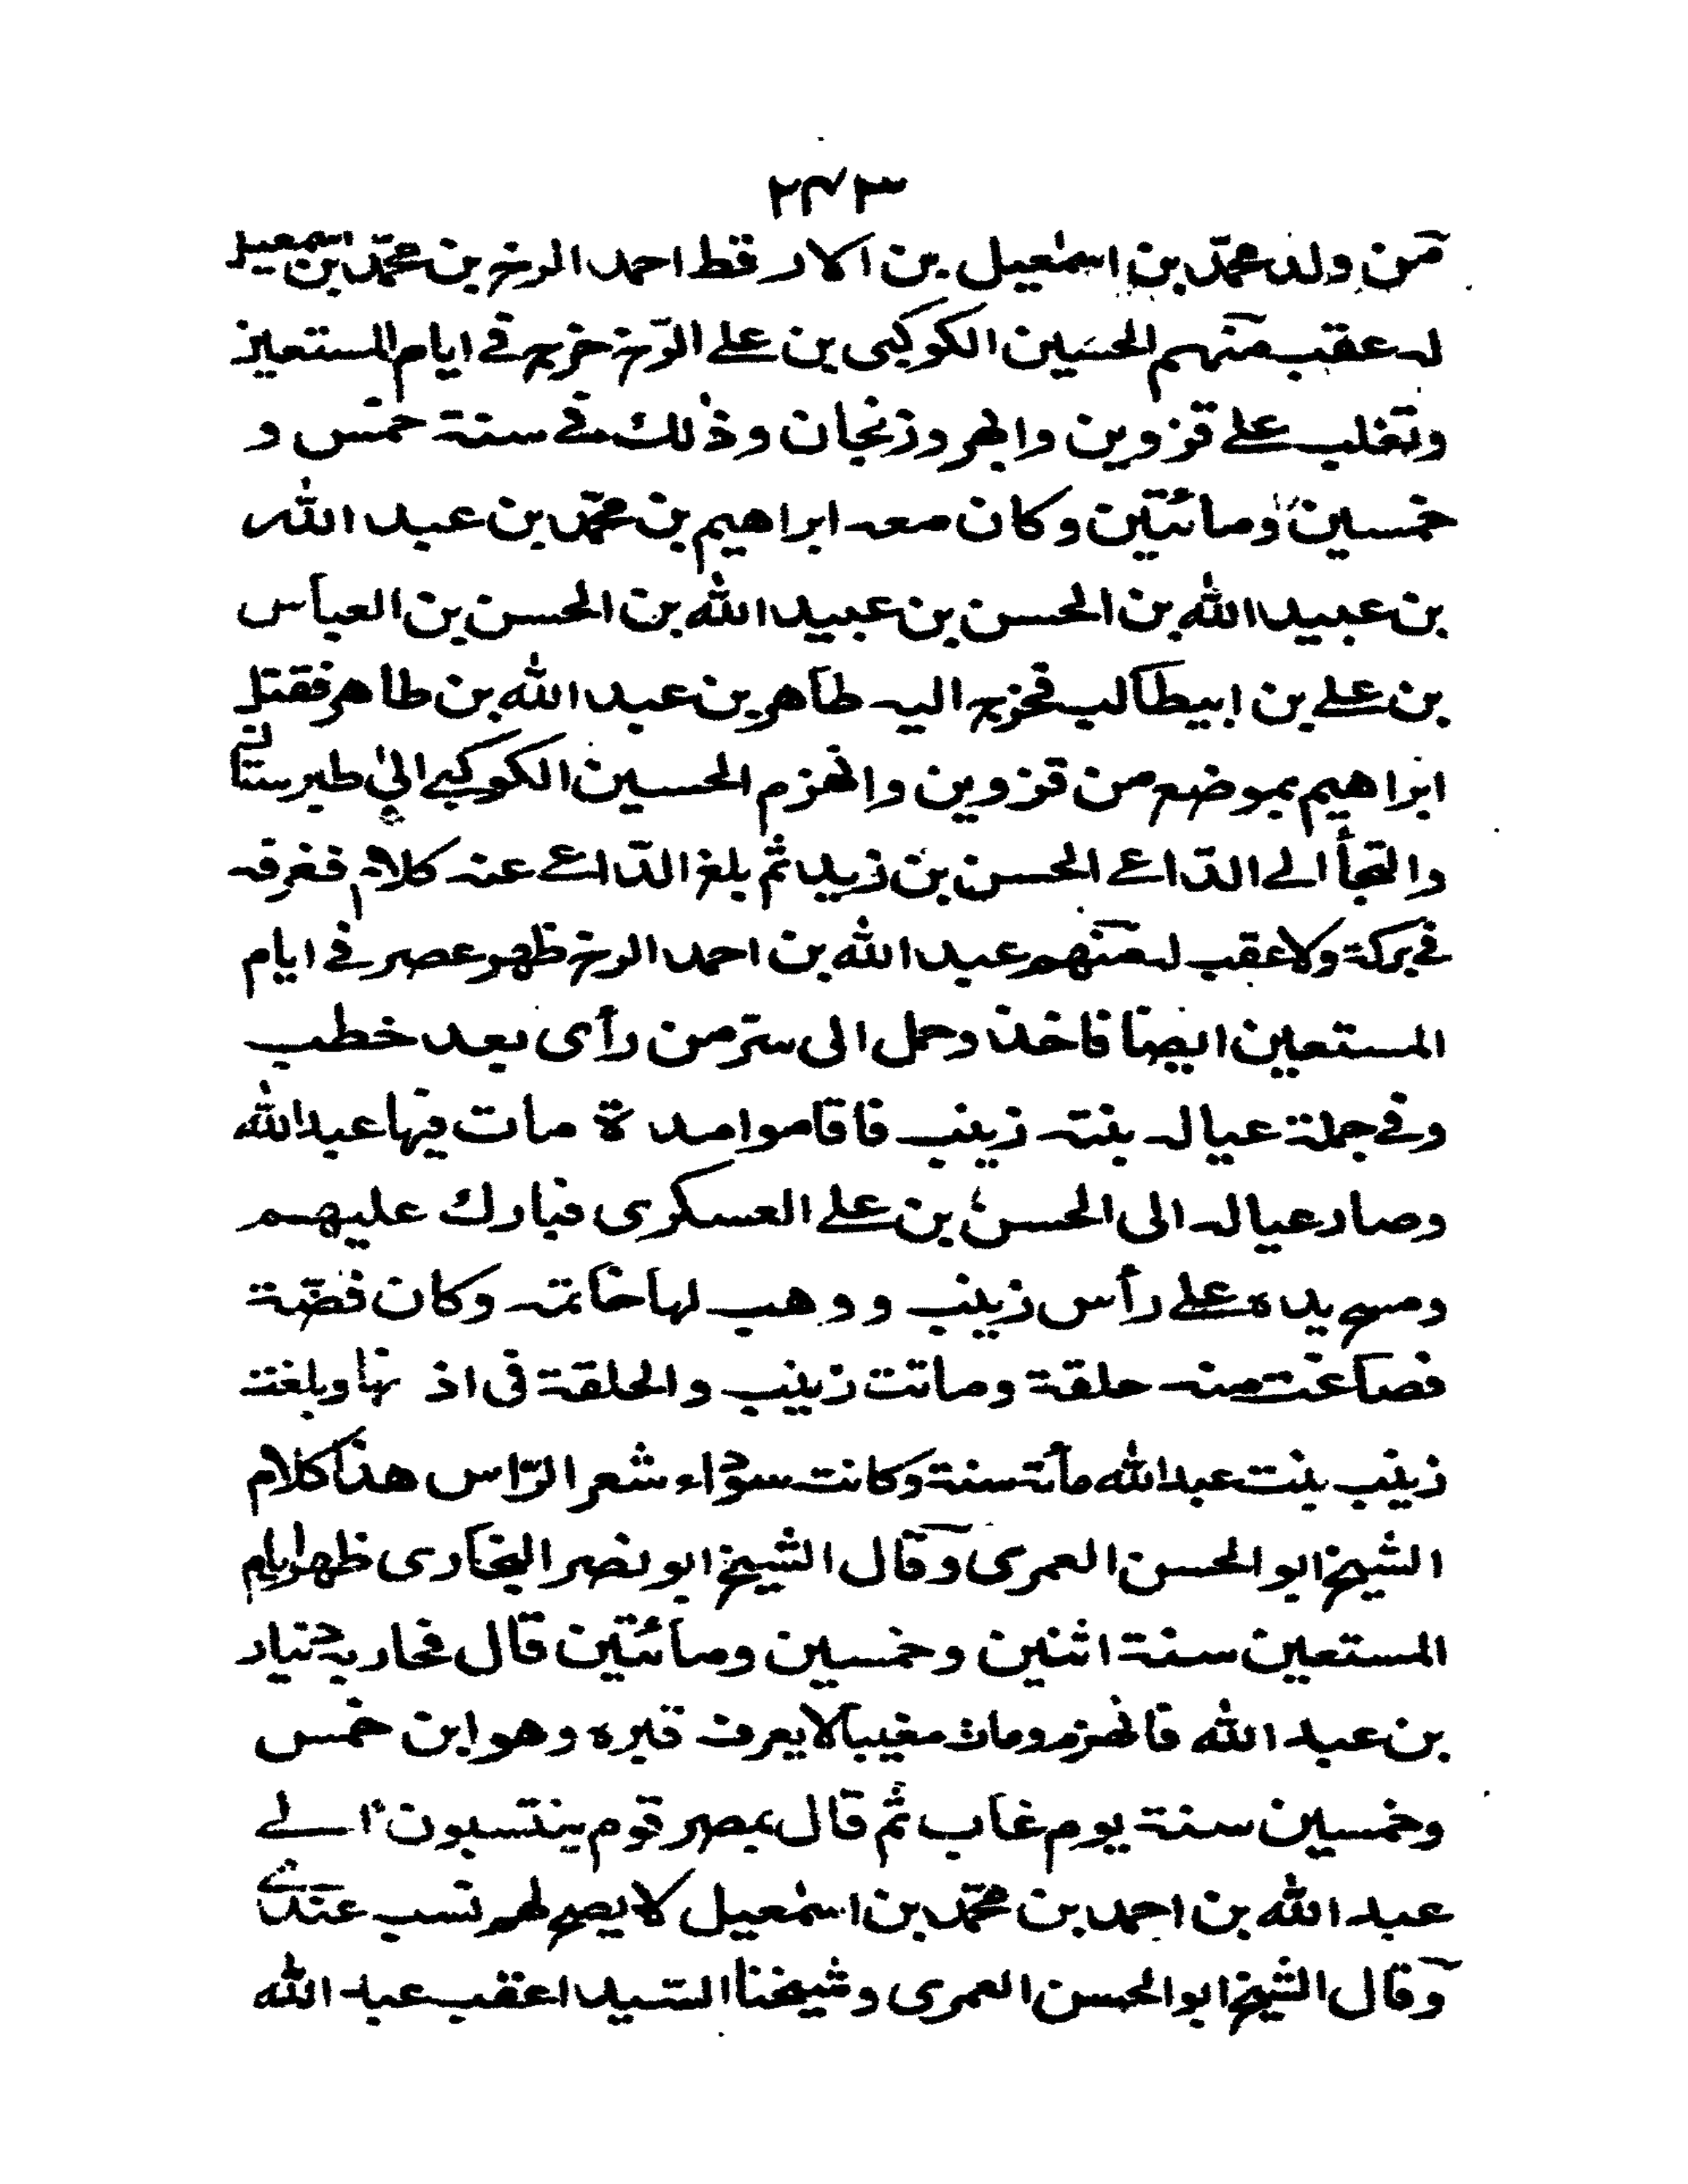 ٢٤٣
فمن ولد محمد بن اسمعيل بن الارقط احمد الرخ بن محمد بن اسمعيل
له عقب فمنهم الحسين الكوكبى بن على الرخ خرج فى ايام المستعين
وتغلب على قزوين وابهر وزنجان وذلك فى سنة خمس و
خمسين ومائتين وكان معه ابراهيم بن محمد بن عبد الله
بن عبيد الله بن الحسن بن عبيد الله بن الحسن بن العباس
بن على بن ابيطالب فخرج اليه طاهر بن عبد الله بن طاهر فقتل
ابراهيم بموضع من قزوين وانهزم الحسين الكوكبى الى طبرستان
والتجأ الى الداعى الحسن بن زيد ثم بلغ الداعى عنه كلام فغرقه
فى بركة ولا عقب له فمنهم عبد الله بن احمد الرخ ظهر عصر فى ايام
المستعين ايضا فاخذ وحمل الى سر من رأى بعد خطب
وفى جملة عياله بنته زينب فاقاموا مدة مات فيها عبد الله
وصار عياله الى الحسن بن على العسكرى فبارك عليهم
ومسح يده على رأس زينب ووهب لها خاتمه وكان فضة
فصاغت منه حلقة وماتت زينب والحلقة فى اذنها وبلغت
زينب بنت عبد الله مأة سنة وكانت سوداء شعر الرّاس هذا كلام
الشيخ ابو الحسن العمرى وقال الشيخ ابو نصر البخارى ظهر ايام
المستعين سنة اثنين وخمسين ومائتين قال فحاربه دنيار
بن عبد الله فانهزم ومات مغيبا لا يعرف قبره وهو ابن خمس
وخمسين سنة يوم غاب ثم قال بمصر قوم ينتسبون الى
عبد الله بن احمد بن محمد بن اسمعيل لا يصح لهم نسب عندى
وقال الشيخ ابو الحسن العمرى وشيخنا السّيد اعقب عبد الله